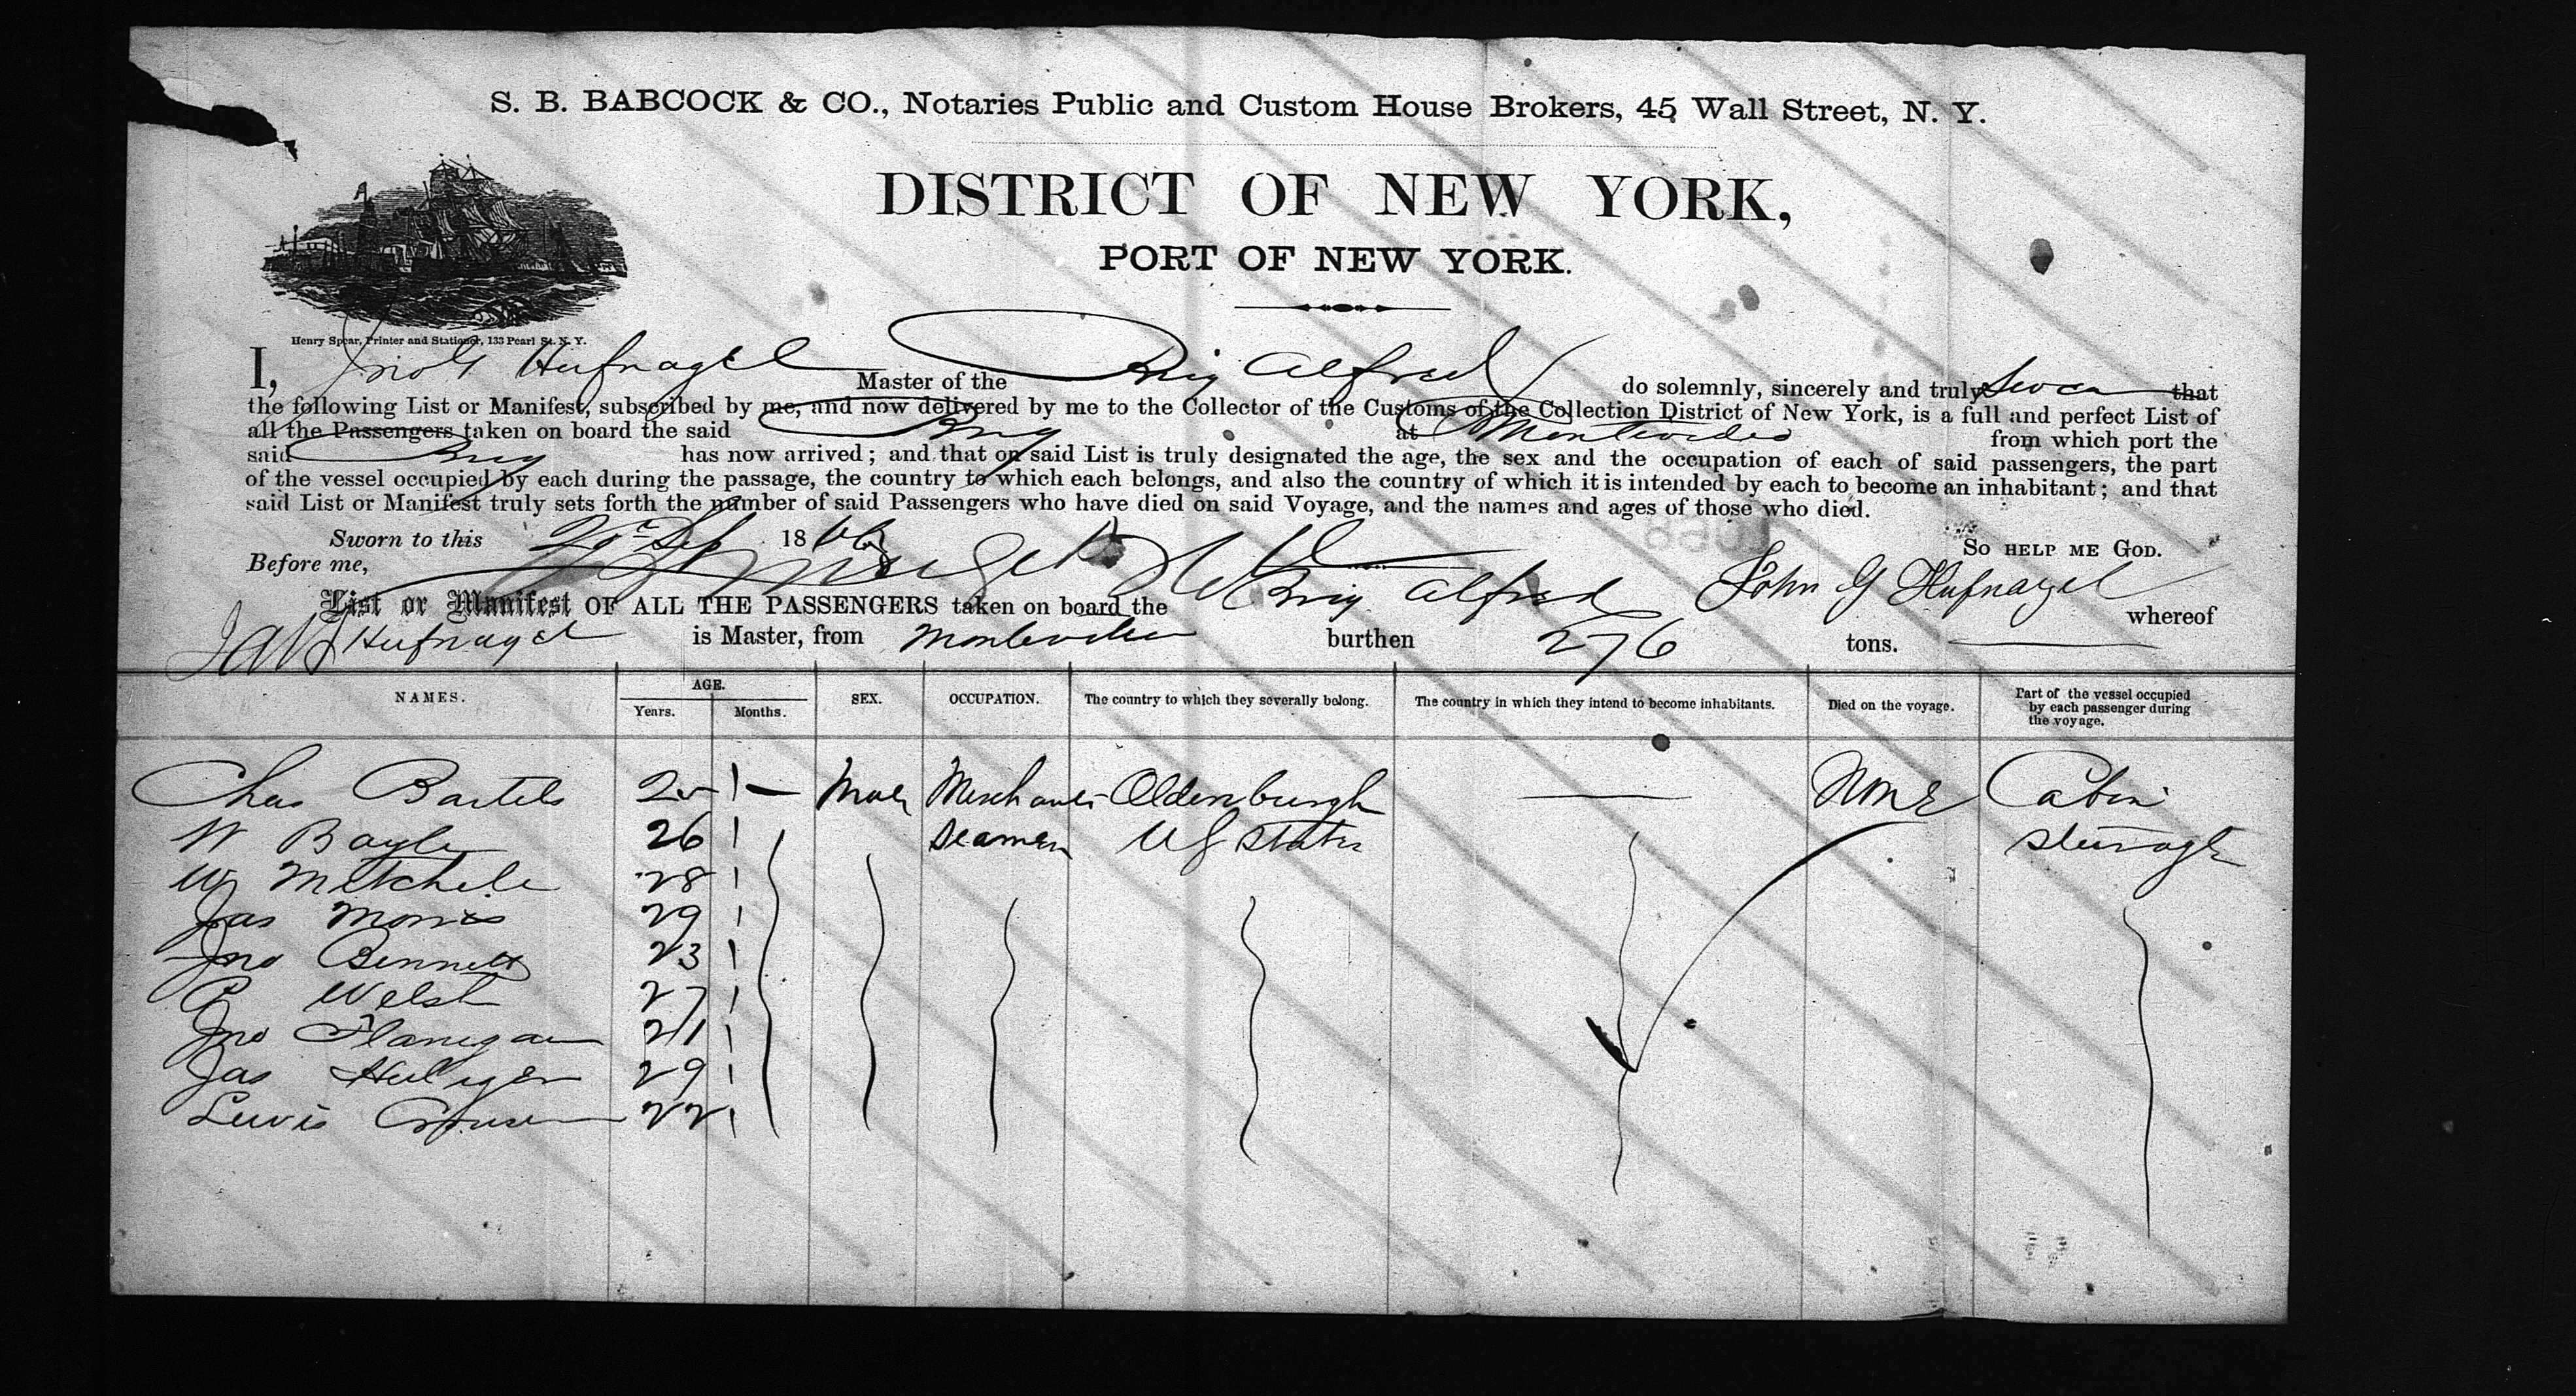 S. B. BABCOCK & CO., Notaries Public and Custom House Brokers, 45 Wall Street, N. Y.
DISTRICT OF NEW YORK,
PORT OF NEW YORK.
Henry Spear, Printer and Stationer, 133 Pearl St. N. Y.
I, Jno G Hufnagel Master of the Brig Alfred do solemnly, sincerely and truly swear that
the following List or Manifest, subscribed by me, and now delivered by me to the Collector of the Customs of the Collection District of New York, is a full and perfect List of
all the Passengers taken on board the said Brig at Montevideo from which port the
said Brig has now arrived; and that on said List is truly designated the age, the sex and the occupation of each of said passengers, the part
of the vessel occupied by each during the passage, the country to which each belongs, and also the country of which it is intended by each to become an inhabitant; and that
said List or Manifest truly sets forth the number of said Passengers who have died on said Voyage, and the names and ages of those who died.
Sworn to this 29 Sep 186
So HELP ME GOD.
Before me,
John G Hufnagel
List or Manifest OF ALL THE PASSENGERS taken on board the Brig Alfred whereof
Hufnagel is Master, from Montevideo burthen 276 tons.
NAMES. AGE. Years. Months. SEX. OCCUPATION. The country to which they severally belong. The country in which they intend to become inhabitants. Died on the voyage. Part of the vessel occupied by each passenger during the voyage.
Chas Bartels Male Merchant Oldenburgh None Cabin
W Bayle 26 Seamen U S States Steerage
Wm Mitchell 28
Jas Morris 29
Jno Bennett 23
P Welsh 27
Jno Flanigan 21
Jas 29
Lewis 22